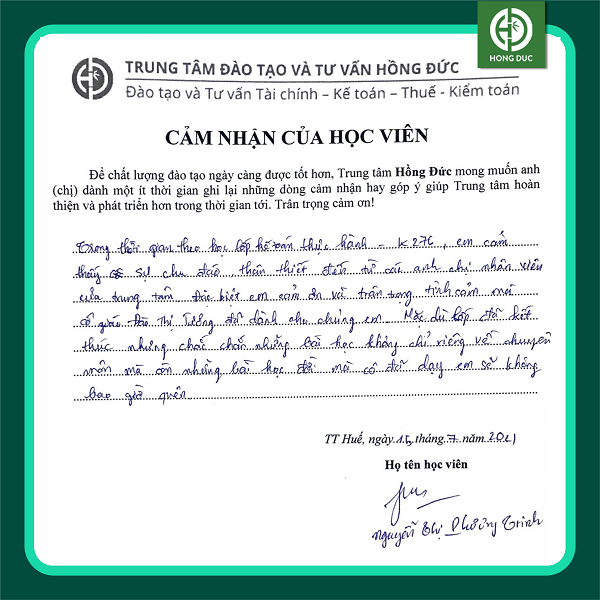 HONG DUC
TRUNG TÂM ĐÀO TẠO VÀ TƯ VẤN HỒNG ĐỨC
Đào tạo và Tư vấn Tài chính – Kế toán – Thuế - Kiểm toán
CẢM NHẬN CỦA HỌC VIÊN
Để chất lượng đào tạo ngày càng được tốt hơn, Trung tâm Hồng Đức mong muốn anh
(chị) dành một ít thời gian ghi lại những dòng cảm nhận hay góp ý giúp Trung tâm hoàn
thiện và phát triển hơn trong thời gian tới. Trân trọng cảm ơn!
Trong thời gian theo học lớp kế toán thực hành - K276, em cảm
thấy sự chu đáo, thân thiết đến từ các anh chị nhân viên
của trung tâm. Đặc biệt em cảm ơn và trân trọng tình cảm mà
cô giáo Đào Thị Tường đã dành cho chúng em. Mặc dù lớp đã kết
thúc nhưng chắc chắn những bài học không chỉ riêng về chuyên
môn mà còn những bài học đời mà cô đã dạy em sẽ không
bao giờ quên
TT Huế, ngày 15 tháng 7 năm 2021
Họ tên học viên
Nguyễn Thị Phương Trinh